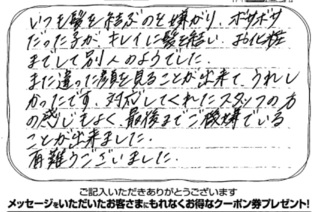 いつも髪を結ぶのを嫌がり、ボサボサ
だった子が、キレイに髪を結い、お化粧
までして別人のようでした。
また違った顔を見ることが出来て、うれし
かったです。対応してくれたスタッフの方
の感じもよく、最後までご機嫌でいる
ことが出来ました。
有難うございました。
ご記入いただきありがとうございます
メッセージをいただいたお客さまにもれなくお得なクーポン券プレゼント!